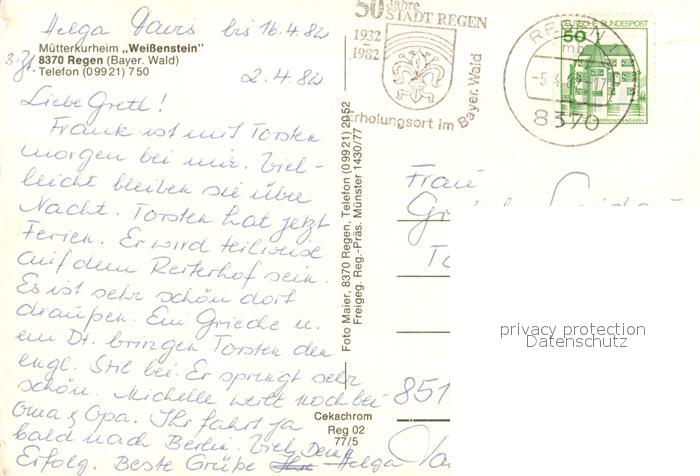 Helga Davis bis 16.4.82
Mütterkurheim „Weißenstein"
8370 Regen (Bayer. Wald)
Telefon (09921) 750
z.Zt.
2.4.82
Liebe Gretl!
Frank ist mit Torsten
morgen bei mir. Viel-
leicht bleiben sie über
Nacht. Torsten hat jetzt
Ferien. Er wird teilweise
auf dem Reiterhof sein.
Es ist sehr schön dort
draußen. Ein Grieche u.
ein Dt. bringen Torsten den
engl. Stil bei. Er springt sehr
schön. Michelle weilt noch bei
Oma & Opa. Ihr fahrt ja
bald nach Berlin. Viel
Erfolg. Beste Grüße Deine Helga
Foto Maier, 8370 Regen, Telefon (09921) 2052
Freigeg. Reg.-Präs. Münster 1430/77
Cekachrom
Reg 02
77/5
50 Jahre
STADT REGEN
1932
-
1982
Erholungsort im Bayer. Wald
REGEN 1
mb
-5.4.82-17
8370
DEUTSCHE BUNDESPOST
50
Frau
851
privacy protection
Datenschutz